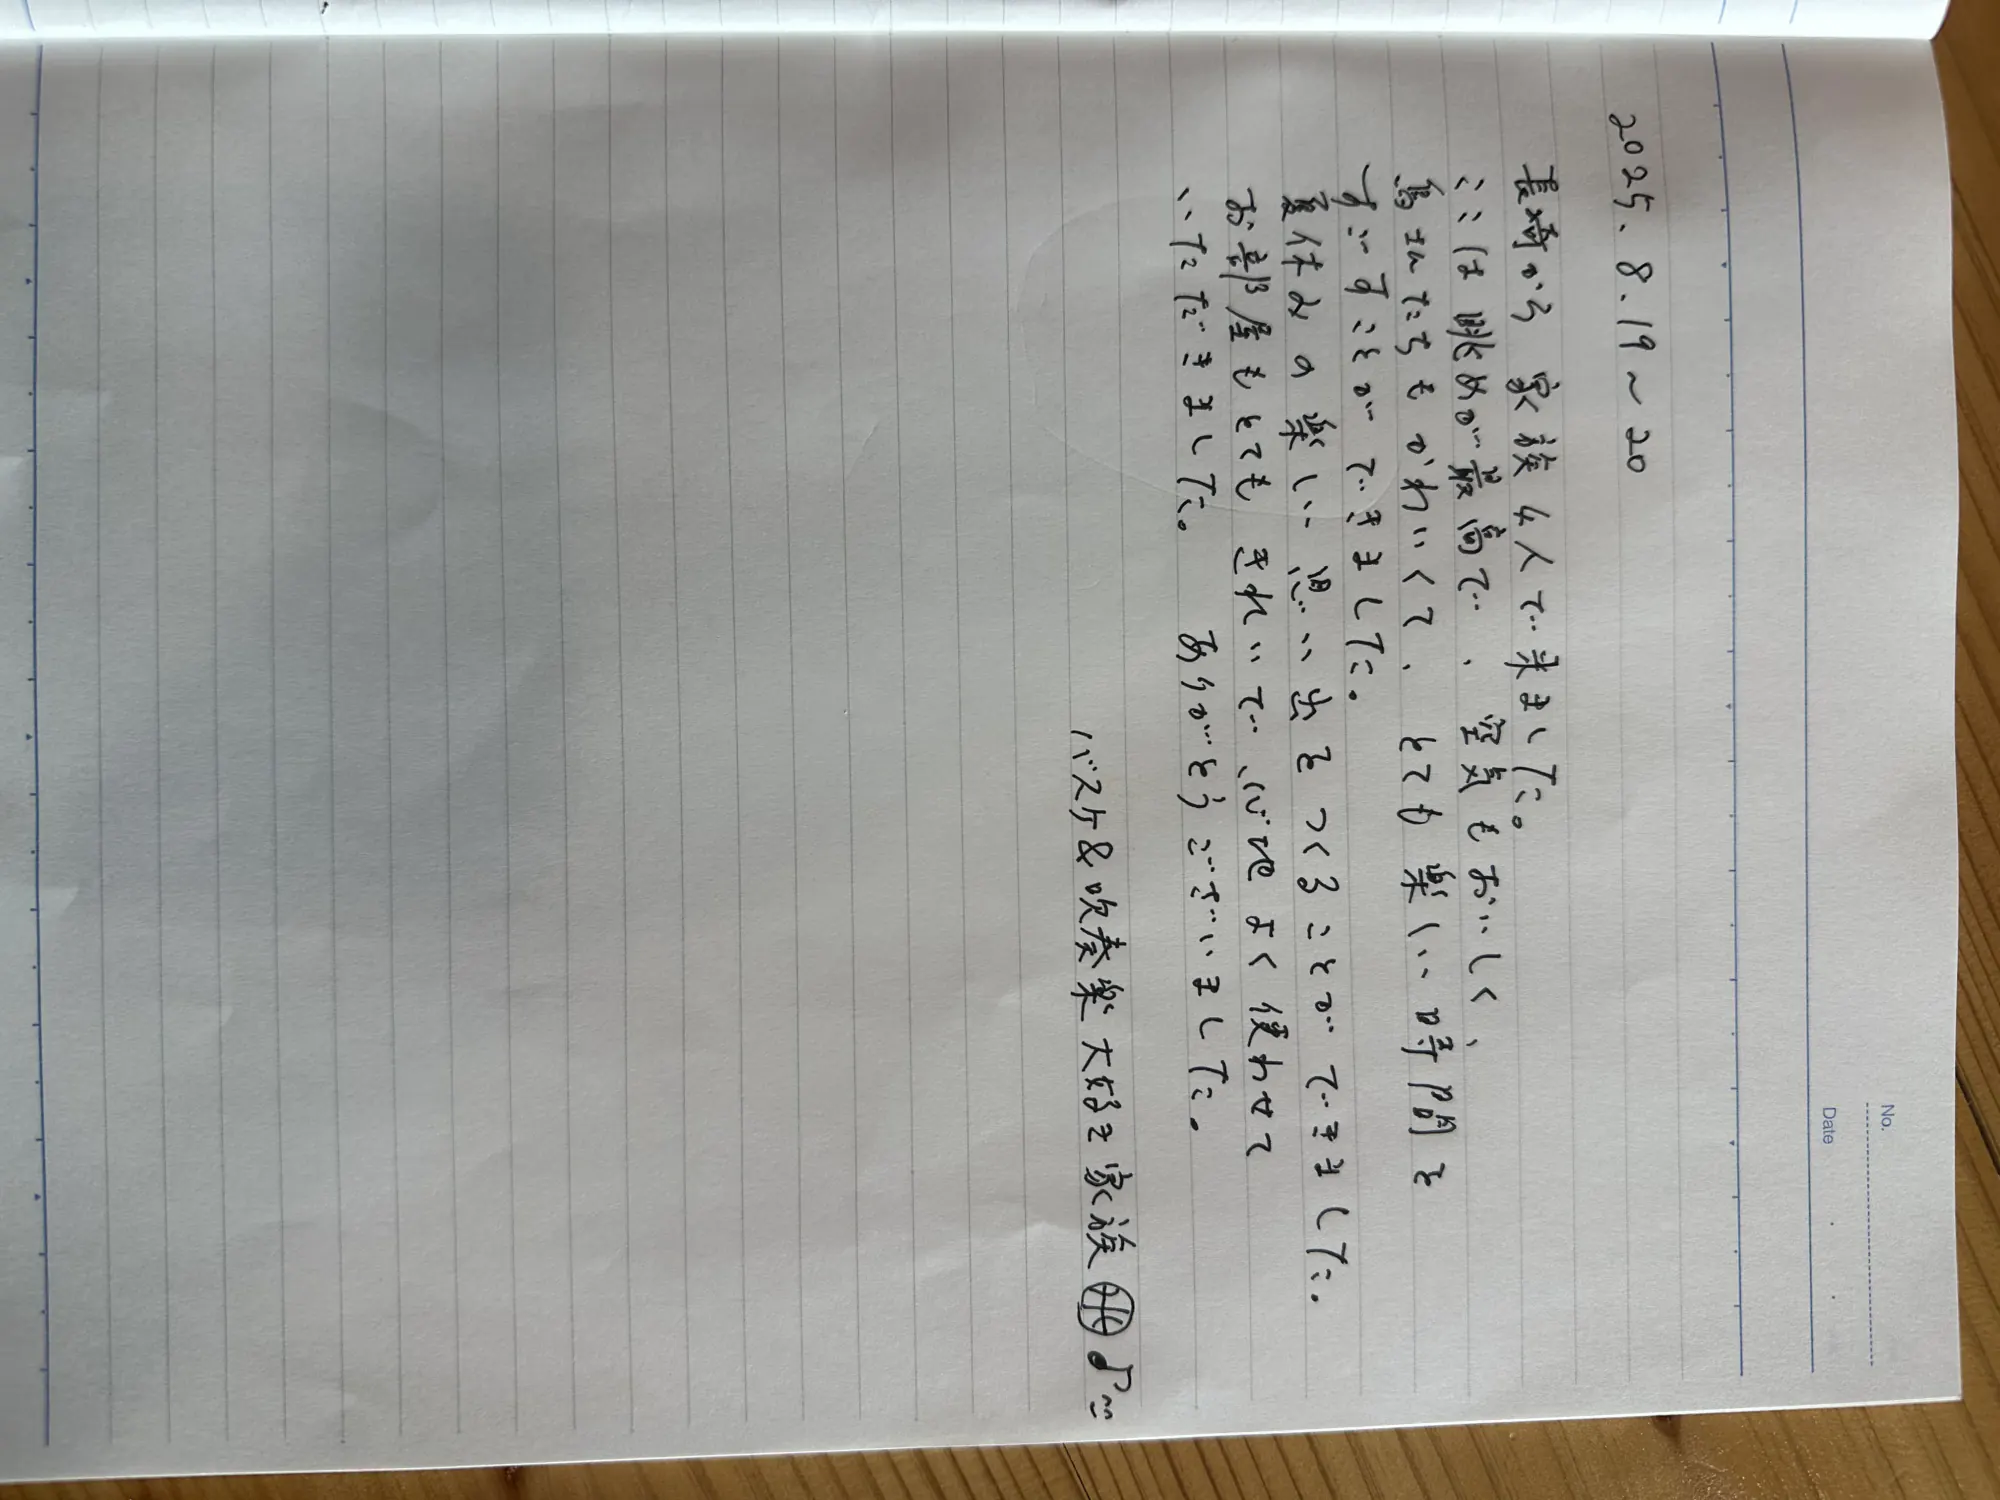 No.
Date
2025.8.19～20
長崎から 家族4人で来ました。
ここは眺めが最高で、空気もおいしく、
鳥さんたちもかわいくて、とても楽しい時間を
すごすことができました。
夏休みの楽しい思い出をつくることができました。
お部屋もとてもきれいで、心地よく使わせて
いただきました。 ありがとうございました。
バスケ&吹奏楽大好き家族 ♪～